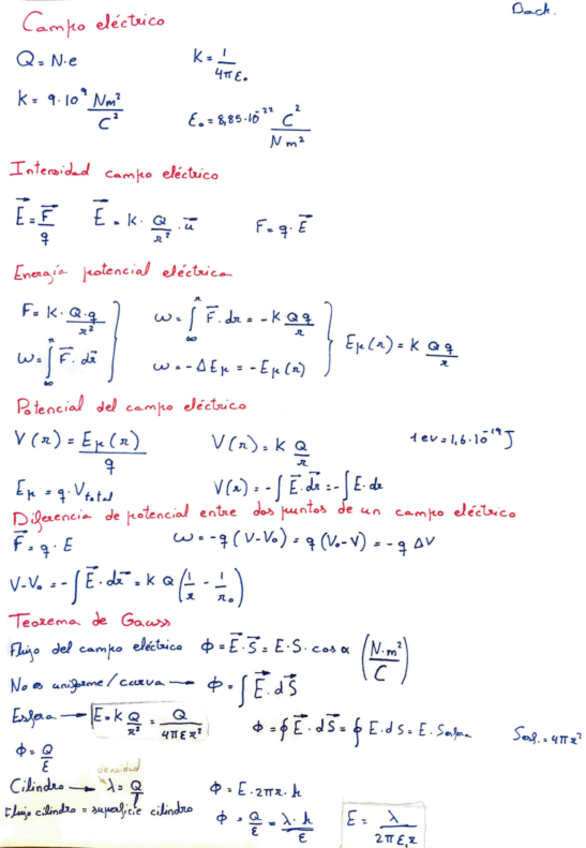 Dach.
Campo eléctrico
Q = N·e    K = 1/4πε₀
K = 9·10⁹ Nm²/C²    ε₀ = 8,85·10⁻²² C²/Nm²
Intensidad campo eléctrico
E⃗ = F⃗/q    E⃗ = K· Q/r² ·u⃗    F = q·E⃗
Energía potencial eléctrica
F = K· Q·q/r²    ω = ∫_∞^r F⃗·dr = -K Qq/r    Ep(r) = K Qq/r
ω = ∫_∞^r F⃗·dr⃗    ω = -ΔEp = -Ep(r)
Potencial del campo eléctrico
V(r) = Ep(r)/q    V(r) = K Q/r    1ev = 1,6·10⁻¹⁹J
Ep = q·Vtotal    V(r) = -∫E⃗·dr⃗ = -∫E·dr
Diferencia de potencial entre dos puntos de un campo eléctrico
F⃗ = q·E    ω = -q(V-V₀) = q(V₀-V) = -q ΔV
V-V₀ = -∫E⃗·dr⃗ = K Q(1/r - 1/r₀)
Teorema de Gauss
Flujo del campo eléctrico ϕ = E⃗·S⃗ = E·S·cos α (N·m²/C)
No es uniforme/curva → ϕ = ∫E⃗·dS⃗
Esfera → E = K Q/r² = Q/4πεr²    ϕ = ∮E⃗·dS⃗ = ∮E·dS = E·Sesfera    Sesf. = 4πr²
ϕ = Q/ε
densidad
Cilindro → λ = Q/l    ϕ = E·2πr·h
Flujo cilindro = superficie cilindro    ϕ = Q/ε = λ·h/ε    E = λ/2πε₀r